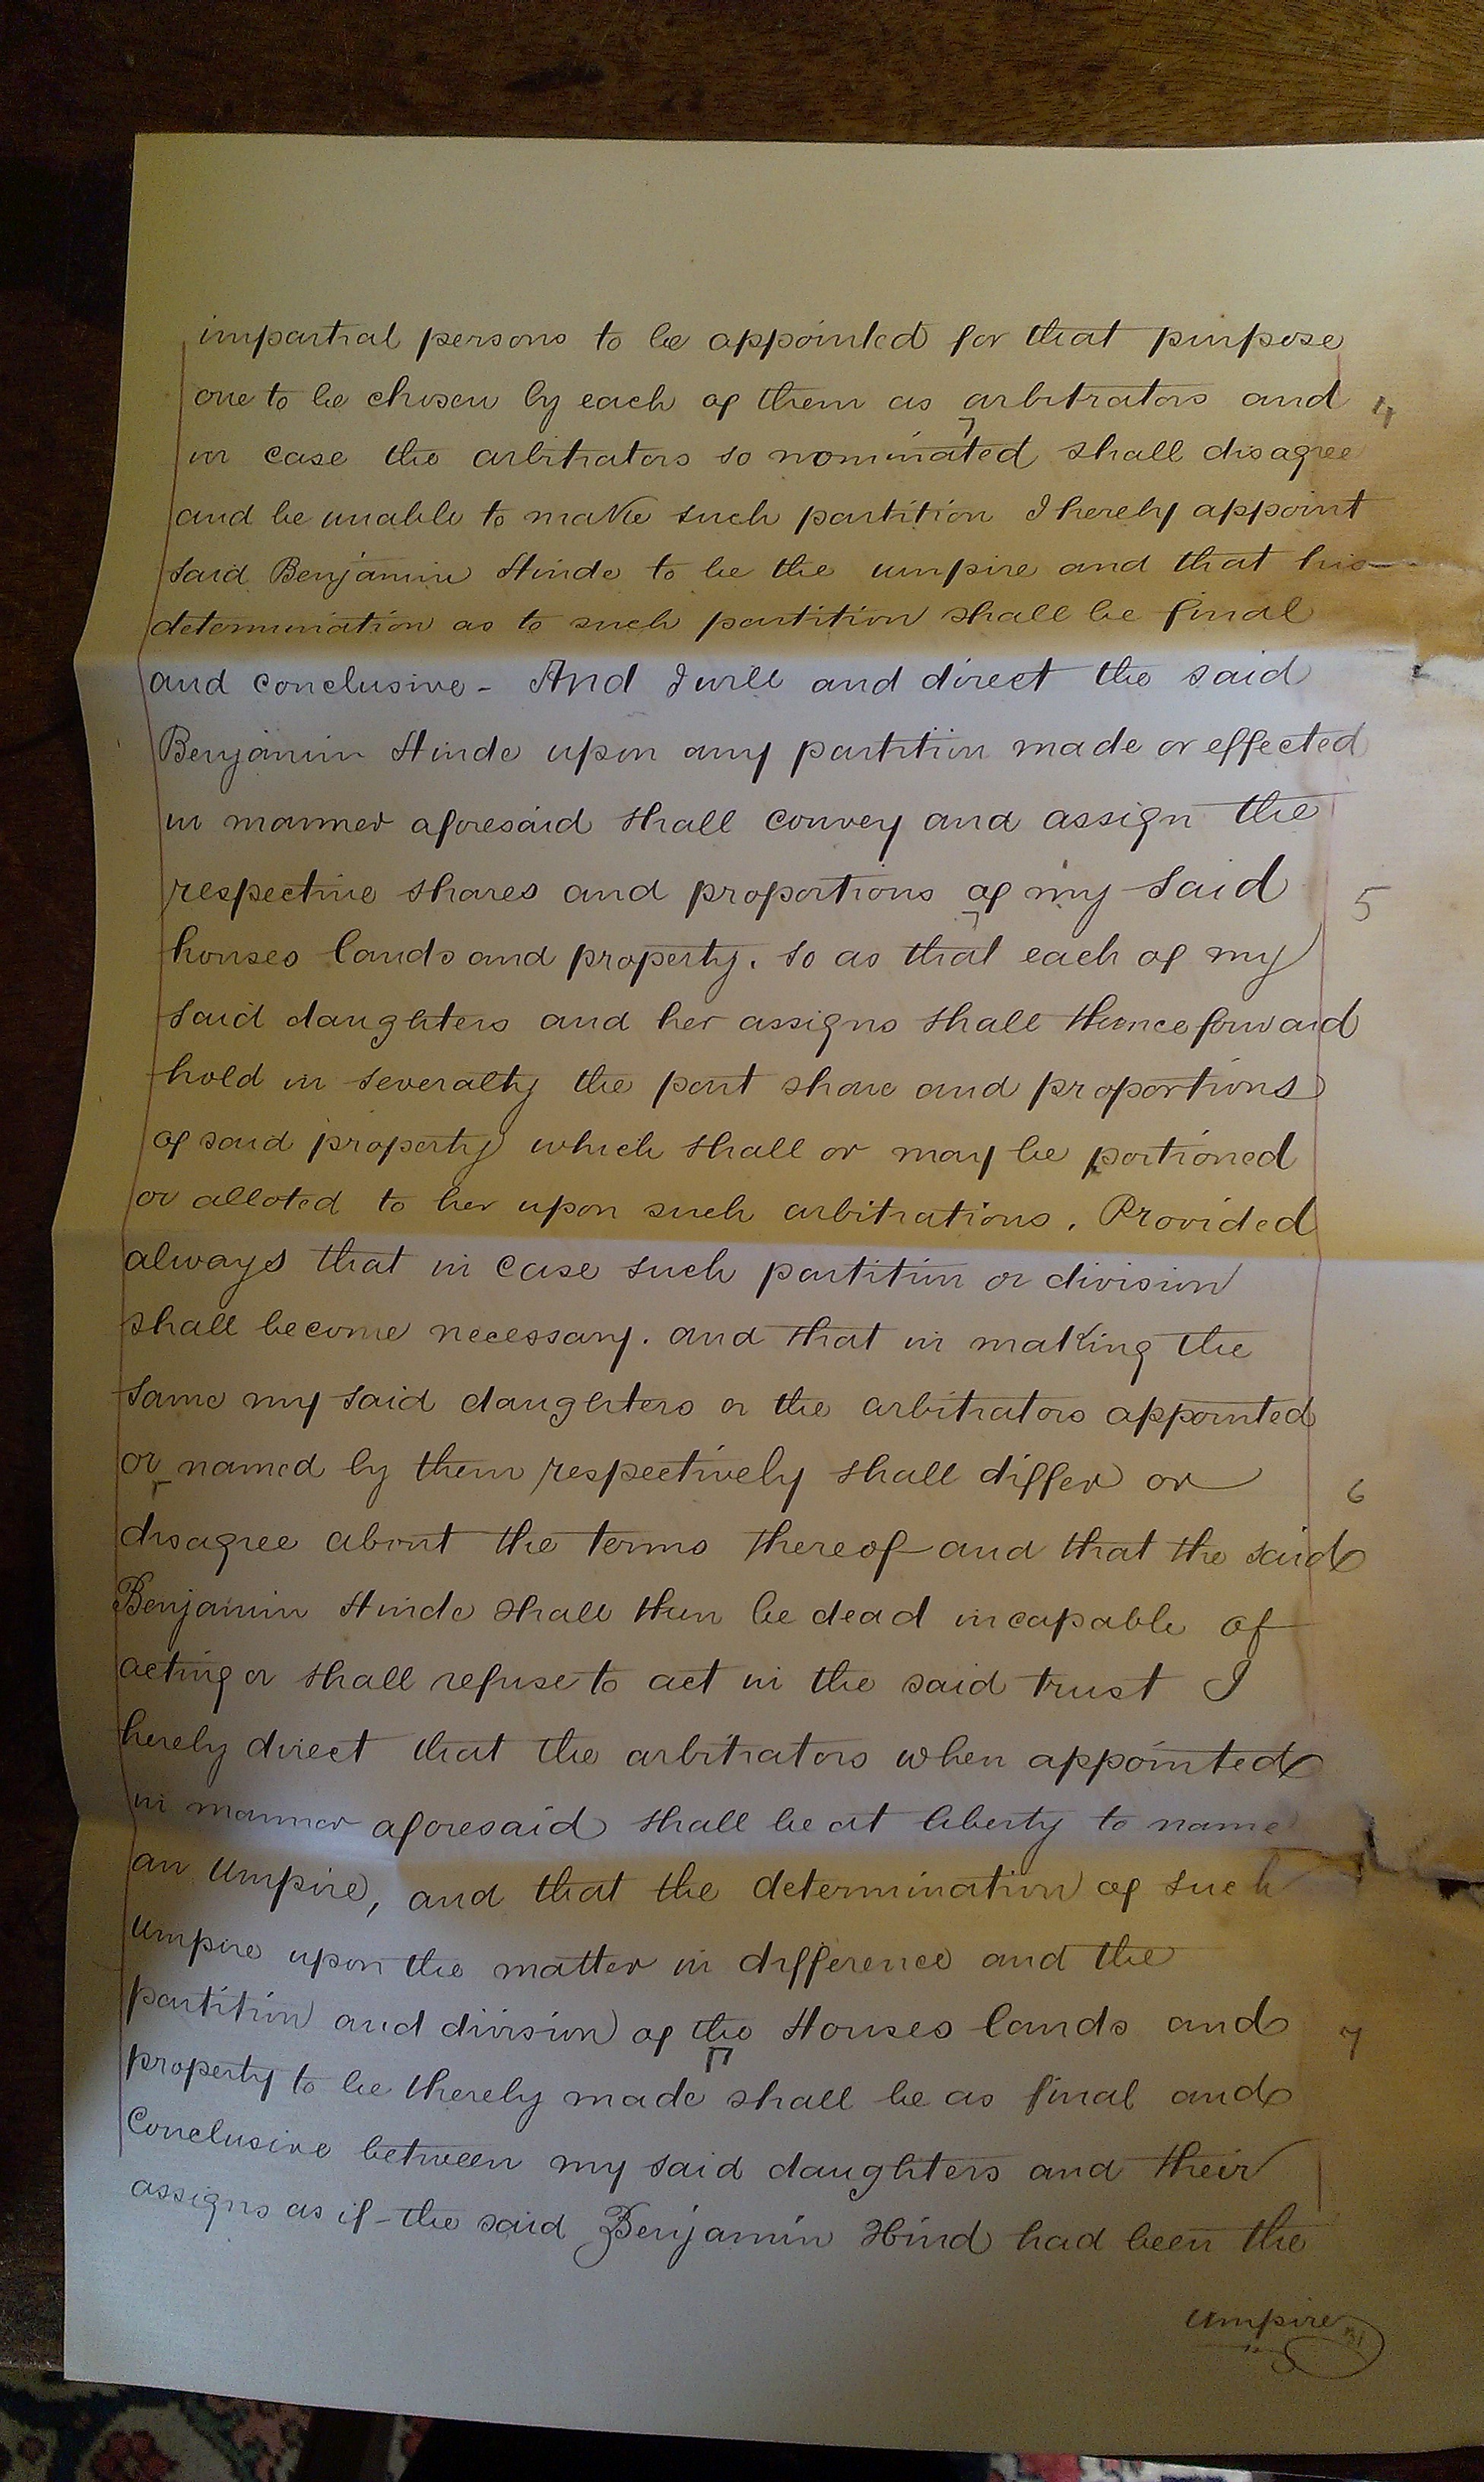 impartial persons to be appointed for that purpose
one to be chosen by each of them as arbitrators and 4
in case the arbitrators so nominated shall disagree
and be unable to make such partition I hereby appoint
said Benjamin Hinde to be the umpire and that his
determination as to such partition shall be final
and conclusive - And I will and direct the said
Benjamin Hinde upon any partition made or effected
in manner aforesaid shall convey and assign the
respective shares and proportions of my said 5
houses lands and property. so as that each of my
said daughters and her assigns shall thenceforward
hold in severalty the part share and proportions
of said property which shall or may be portioned
or alloted to her upon such arbitrations. Provided
always that in case such partition or division
shall become necessary. and that in making the
same my said daughters or the arbitrators appointed
or named by them respectively shall differ or 6
disagree about the terms thereof and that the said
Benjamin Hinde shall then be dead incapable of
acting or shall refuse to act in the said trust I
hereby direct that the arbitrators when appointed
in manner aforesaid shall be at liberty to name
an Umpire, and that the determination of such
umpire upon the matter in difference and the
partition and division of the Houses lands and 7
property to be thereby made shall be as final and
Conclusive between my said daughters and their
assigns as if the said Benjamin Hind had been the
umpire